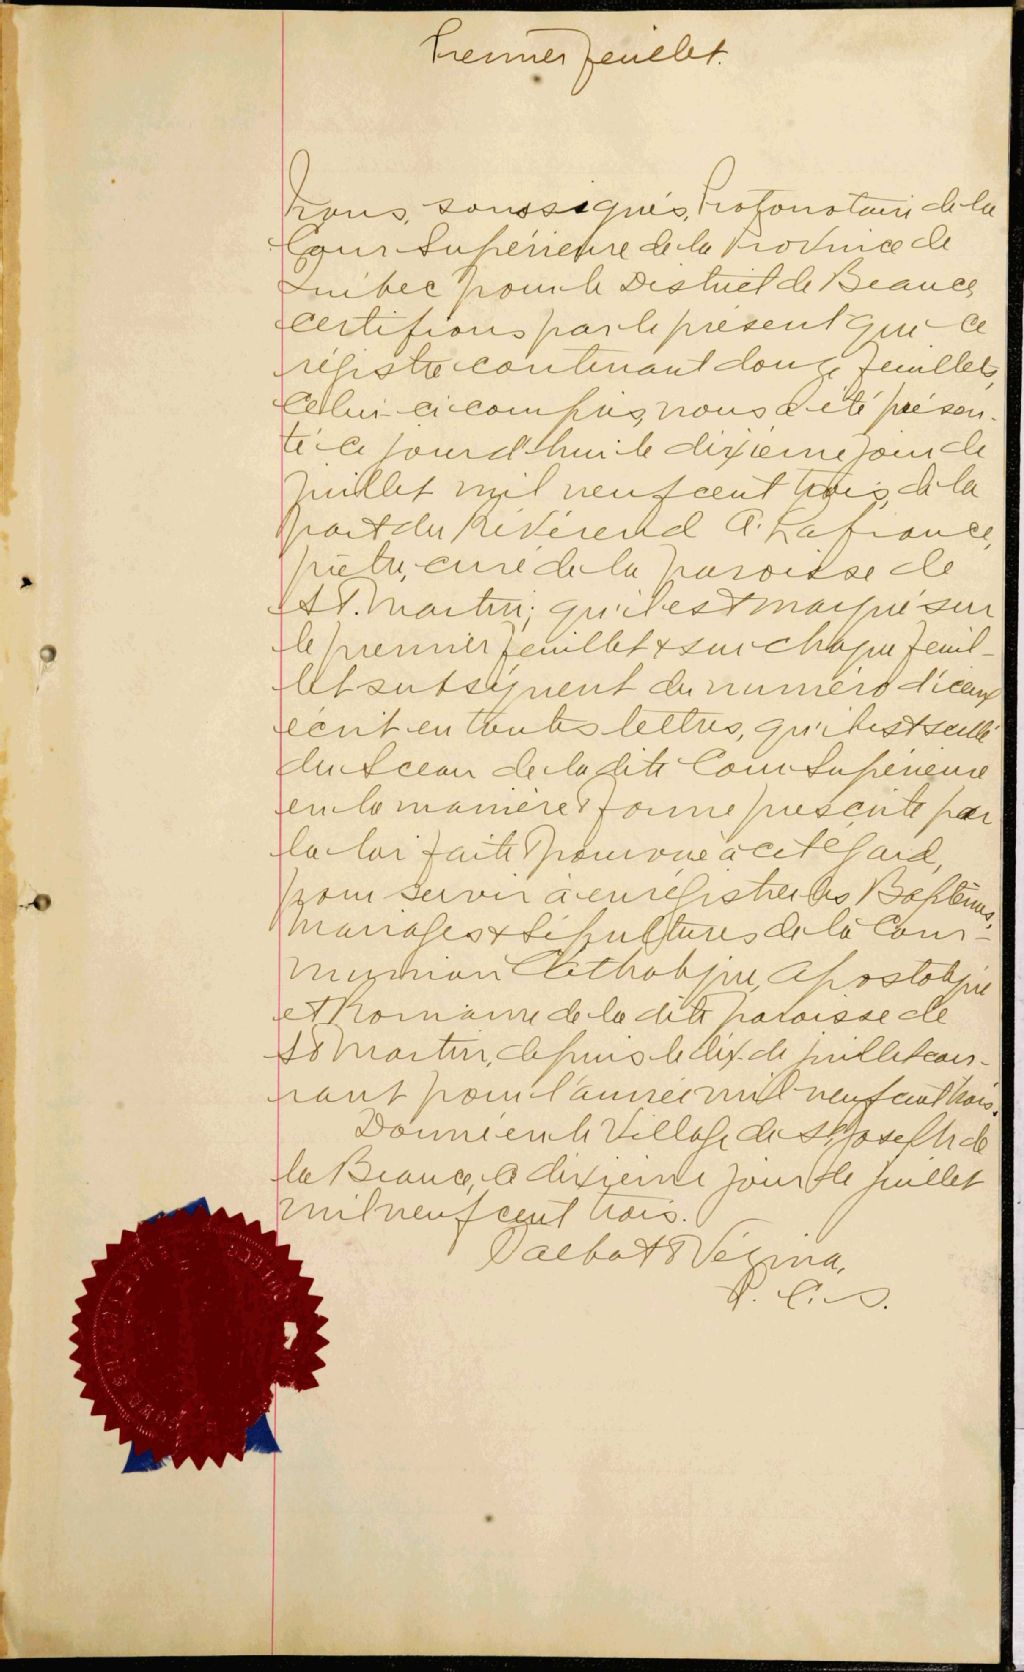 Premier feuillet.
Nous, soussignés, Protonotaire de la
Cour Supérieure de la Province de
Québec pour le District de Beauce,
certifions par le présent que ce
régistre contenant douze feuillets,
celui-ci compris, nous a été présen-
té ce jourd'hui le dixième jour de
juillet mil neuf cent trois, de la
part du Révérend A. Lafrance,
prêtre, curé de la paroisse de
St. Martin; qu'il est marqué sur
le premier feuillet & sur chaque feuil-
let subséquent du numéro d'iceux
écrit en toutes lettres, qu'il est scellé
du Sceau de la dite Cour Supérieure
en la manière & forme prescrite par
la loi faite & pourvue à cet égard,
pour servir à enrégistrer les Baptêmes,
Mariages & Sépultures de la Com-
munion Catholique, Apostolique
et Romaine de la dite paroisse de
St Martin, depuis le dix de juillet cou-
rant pour l'année mil neuf cent trois.
Donné en le Village de St. Joseph de
la Beauce, ce dixième jour de juillet
mil neuf cent trois.
Talbot & Vézina,
P. C. S.